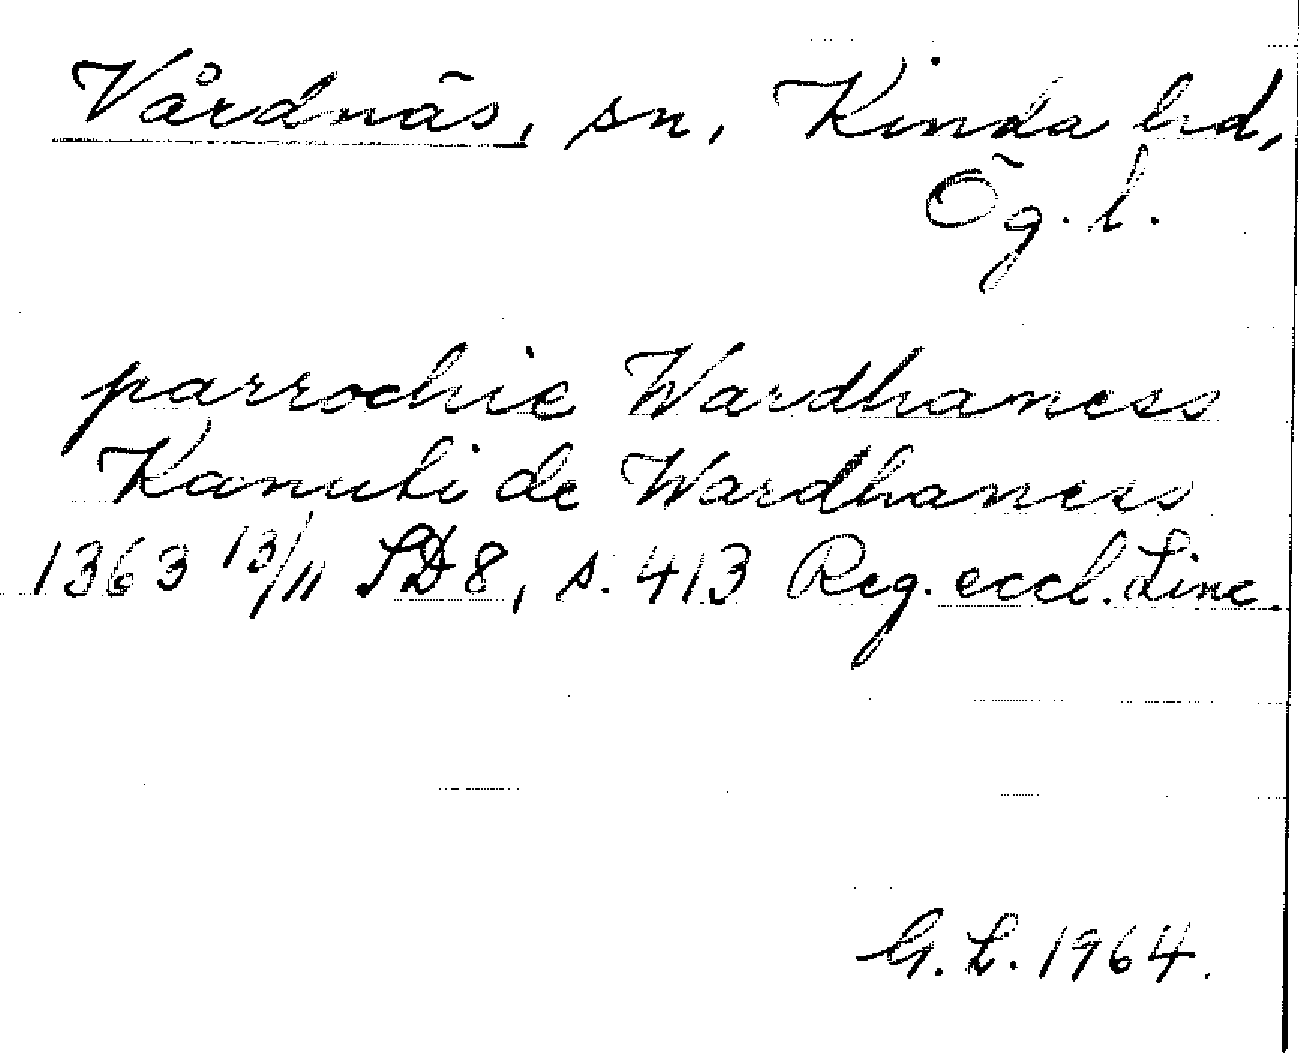 Vårdnäs, sn, Kinda hd,
Ög. l.
parrochie Wardhaness
Kanuti de Wardhaness
1363 13/11 SD 8, s. 413 Reg. eccl. Linc.
G. L. 1964.